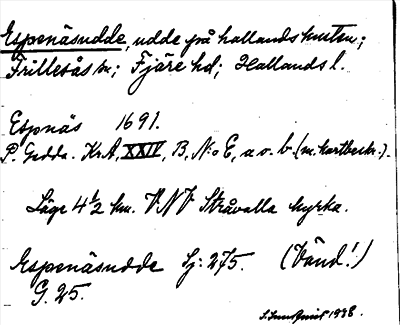 Espenäsudde, udde på hallandskusten;
Frillesås sn; Fjäre hd; Hallands l.
Espnäs 1691.
P. Gedda. KrA, XXIV, B, N:o E, a o. b. (m. kartbeskr.).
Läge 4 1/2 km. VNV Stråvalla kyrka.
Espenäsudde Sj: 275. (Vänd!)
G. 25.
1938